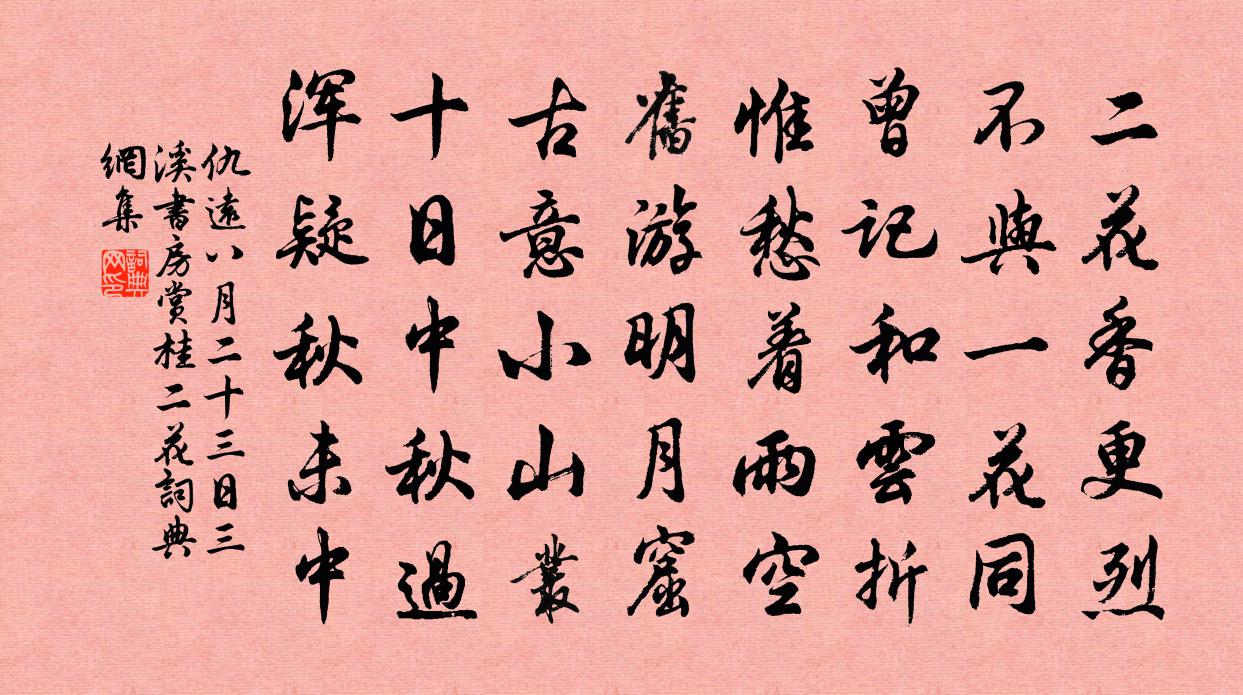 二花香更烈
不與一花同
曾記和雲折
惟愁着雨空
舊游明月窟
古意小山叢
十日中秋過
浑疑秋未中
仇遠八月二十三日三
溪書房賞桂二花詞典
網集
詞典網印